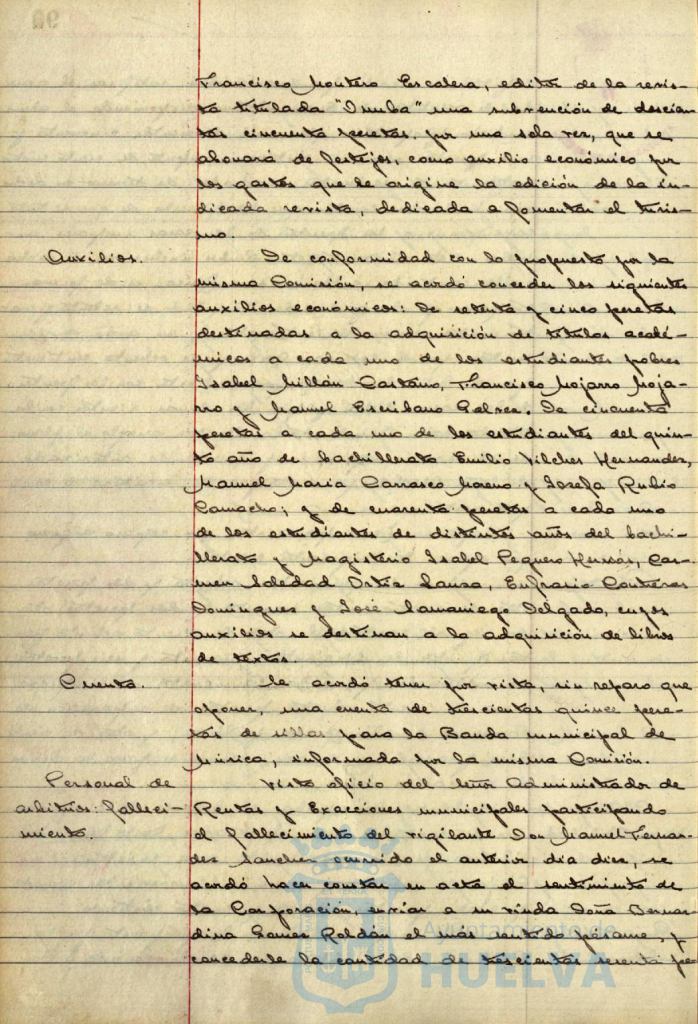 Francisco Montero Escalera, editor de la revis-
ta titulada "Onuba" una subvención de doscien-
tas cincuenta pesetas, por una sola vez, que se
abonará de festejos, como auxilio económico por
los gastos que le origine la edición de la in-
dicada revista, dedicada a fomentar el turis-
mo.
Auxilios. De conformidad con lo propuesto por la
misma Comisión, se acordó conceder los siguientes
auxilios económicos: De setenta y cinco pesetas
destinadas a la adquisición de títulos acadé-
micos a cada uno de los estudiantes pobres
Isabel Millán Castaño, Francisco Mojarro Moja-
rro y Manuel Escribano Galvez. De cincuenta
pesetas a cada uno de los estudiantes del quin-
to año de bachillerato Emilio Vilches Hernandez,
Manuel Maria Carrasco Moreno y Josefa Rubio
Camacho; y de cuarenta pesetas a cada uno
de los estudiantes de distintos años del bachi-
llerato y Magisterio Isabel Peguero Car-
men Soledad Ortiz Eufrasio Contreras
Domingues y José Samaniego Delgado, cuyos
auxilios se destinan a la adquisición de libros
de textos.
Cuenta. Se acordó tener por vista, sin reparo que
oponer, una cuenta de trescientas quince pese-
tas de sillas para la Banda municipal de
Música, informada por la misma Comisión.
Personal de Visto oficio del Señor Administrador de
arbitrios: falleci- Rentas y Exacciones municipales participando
miento. el fallecimiento del vigilante Don Manuel Fernan-
dez Sanchez ocurrido el anterior dia diez, se
acordó hacer constar en acta el sentimiento de
la Corporación, enviar a su viuda Doña Bernar-
dina Gomez Roldán el más sentido pésame, y
concederle la cantidad de trescientas sesenta pe-
Ayuntamiento de
HUELVA